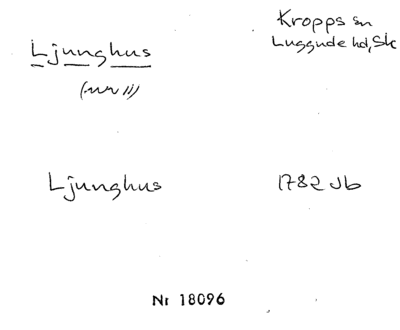 Ljunghus
Kropps sn
Luggude hd, Sk
Ljunghus
1782 Jb
Nr 18096